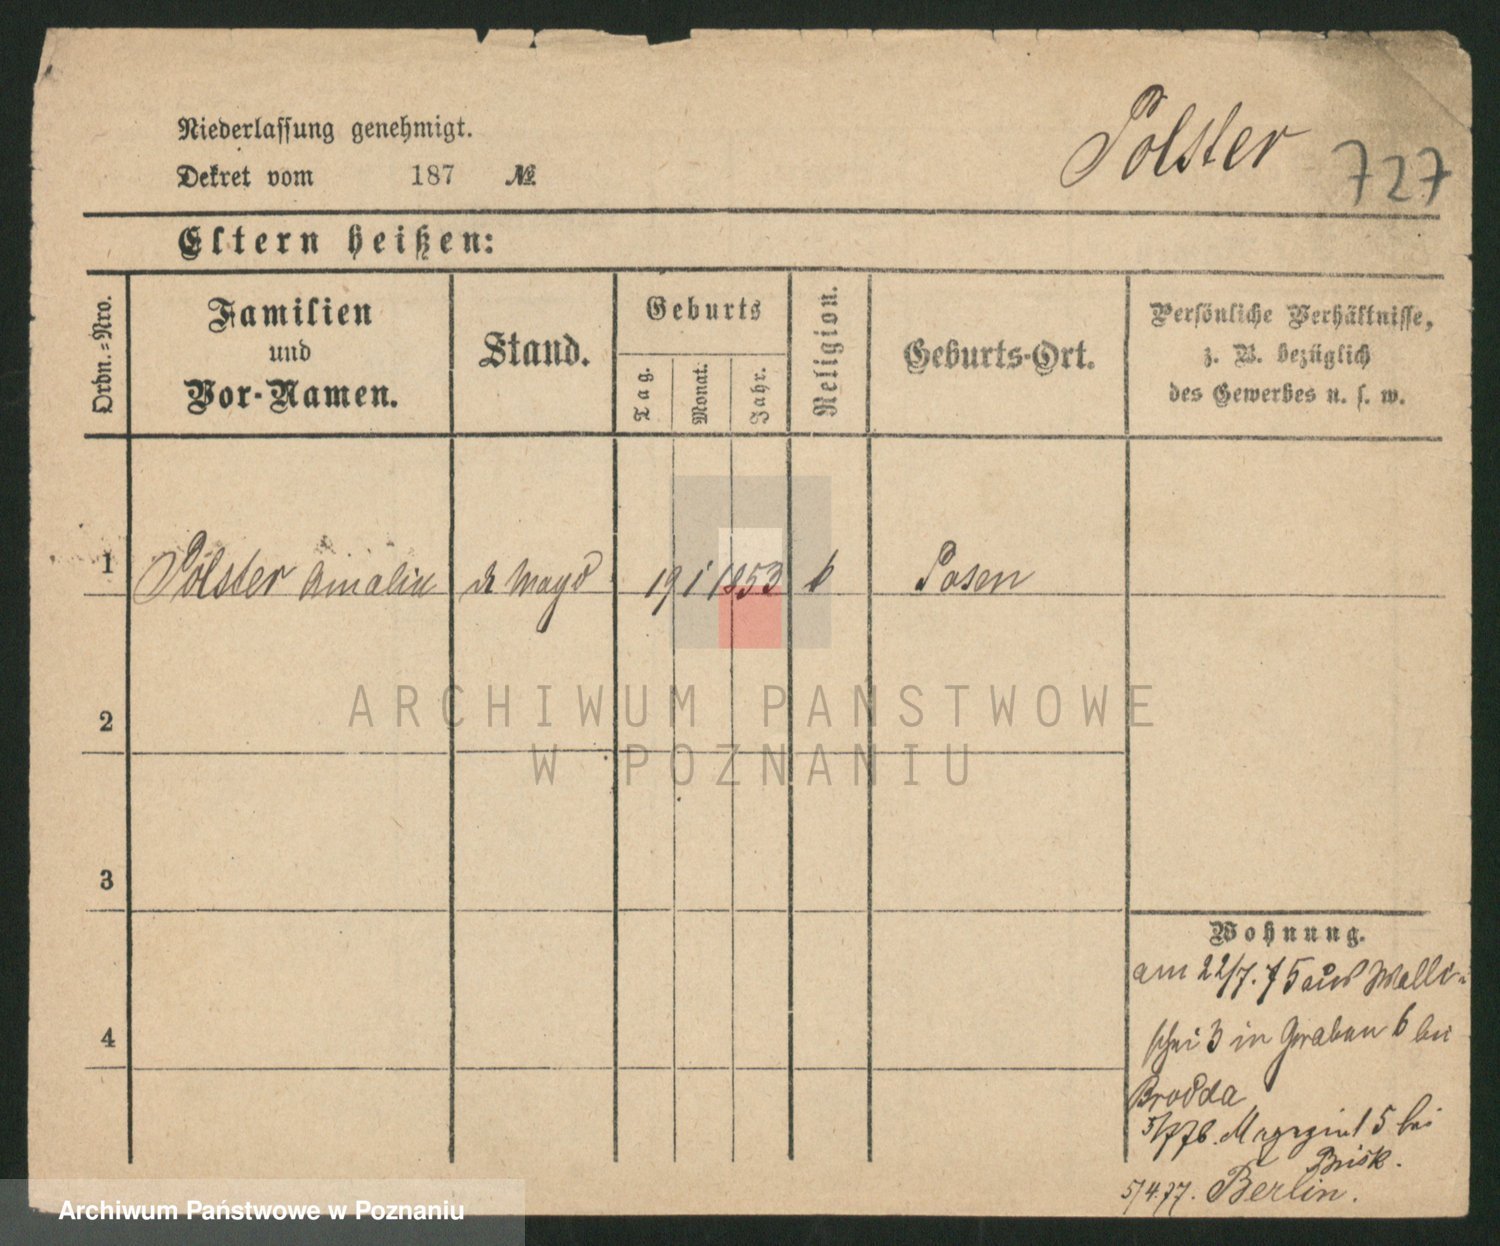 Niederlassung genehmigt.
Dekret vom 187 №
Polster
727
Eltern heißen:
Ordn.-Nro.
Familien
und
Vor-Namen.
Stand.
Geburts
Tag.
Monat.
Jahr.
Religion.
Geburts-Ort.
Persönliche Verhältnisse,
z. B. bezüglich
des Gewerbes u. s. w.
1 Polster Amalia Magd 19 1 1853 Posen
2
ARCHIWUM PAŃSTWOWE
W POZNANIU
3
4
Wohnung.
am 22/7. 75 aus Walli-
schei 3 in Graben 6 bei
Brodda
5/7 76. Magazinst 5 bei
Brisk.
5/4.77. Berlin.
Archiwum Państwowe w Poznaniu